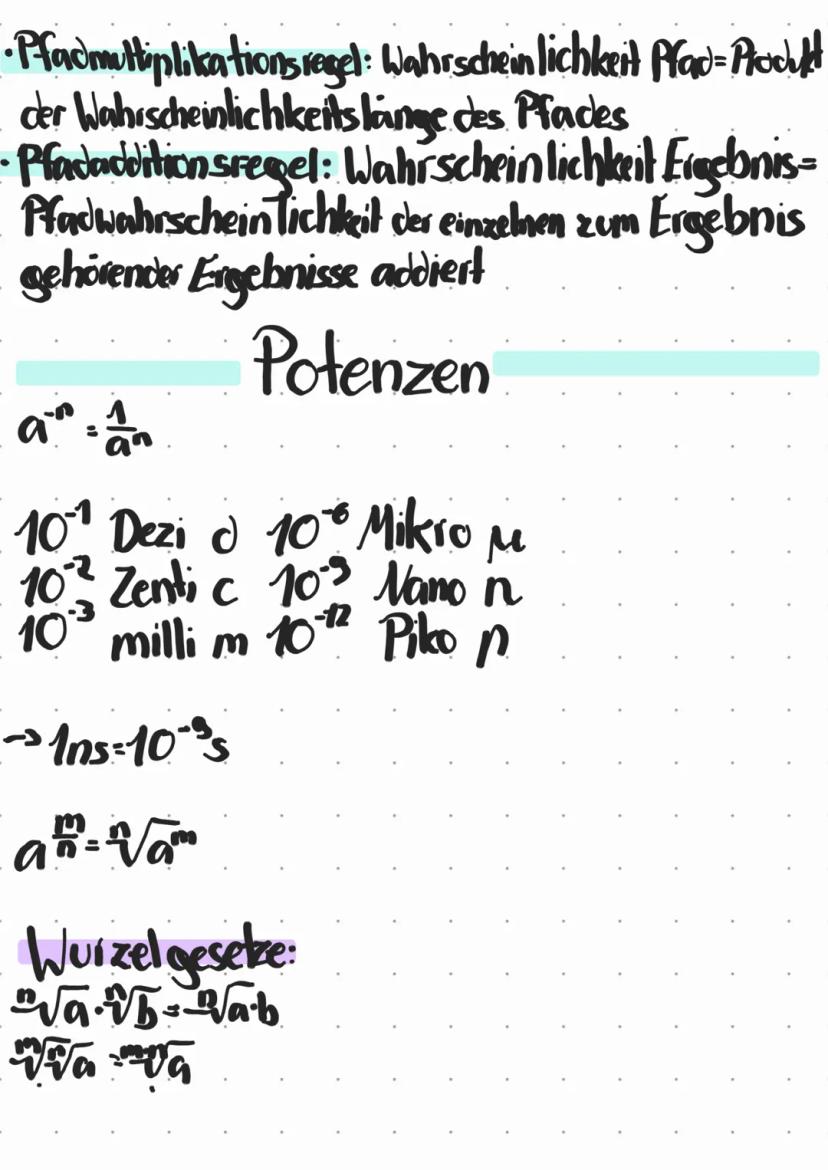 ·Pfadmultiplikationsregel: Wahrscheinlichkeit Pfad=Produkt
der Wahrscheinlichkeitslänge des Pfades
·Pfadadditionsregel: Wahrscheinlichkeit Ergebnis=
Pfadwahrscheinlichkeit der einzelnen zum Ergebnis
gehörender Ergebnisse addiert
Potenzen
a⁻ⁿ = 1/aⁿ
10⁻¹ Dezi d 10⁻⁶ Mikro μ
10⁻² Zenti c 10⁻⁹ Nano n
10⁻³ milli m 10⁻¹² Piko p
→ 1ns=10⁻⁹s
a^(m/n) = ⁿ√aᵐ
Wurzelgesetze:
ⁿ√a · ⁿ√b = ⁿ√a·b
ᵐ√ⁿ√a = ᵐ·ⁿ√a